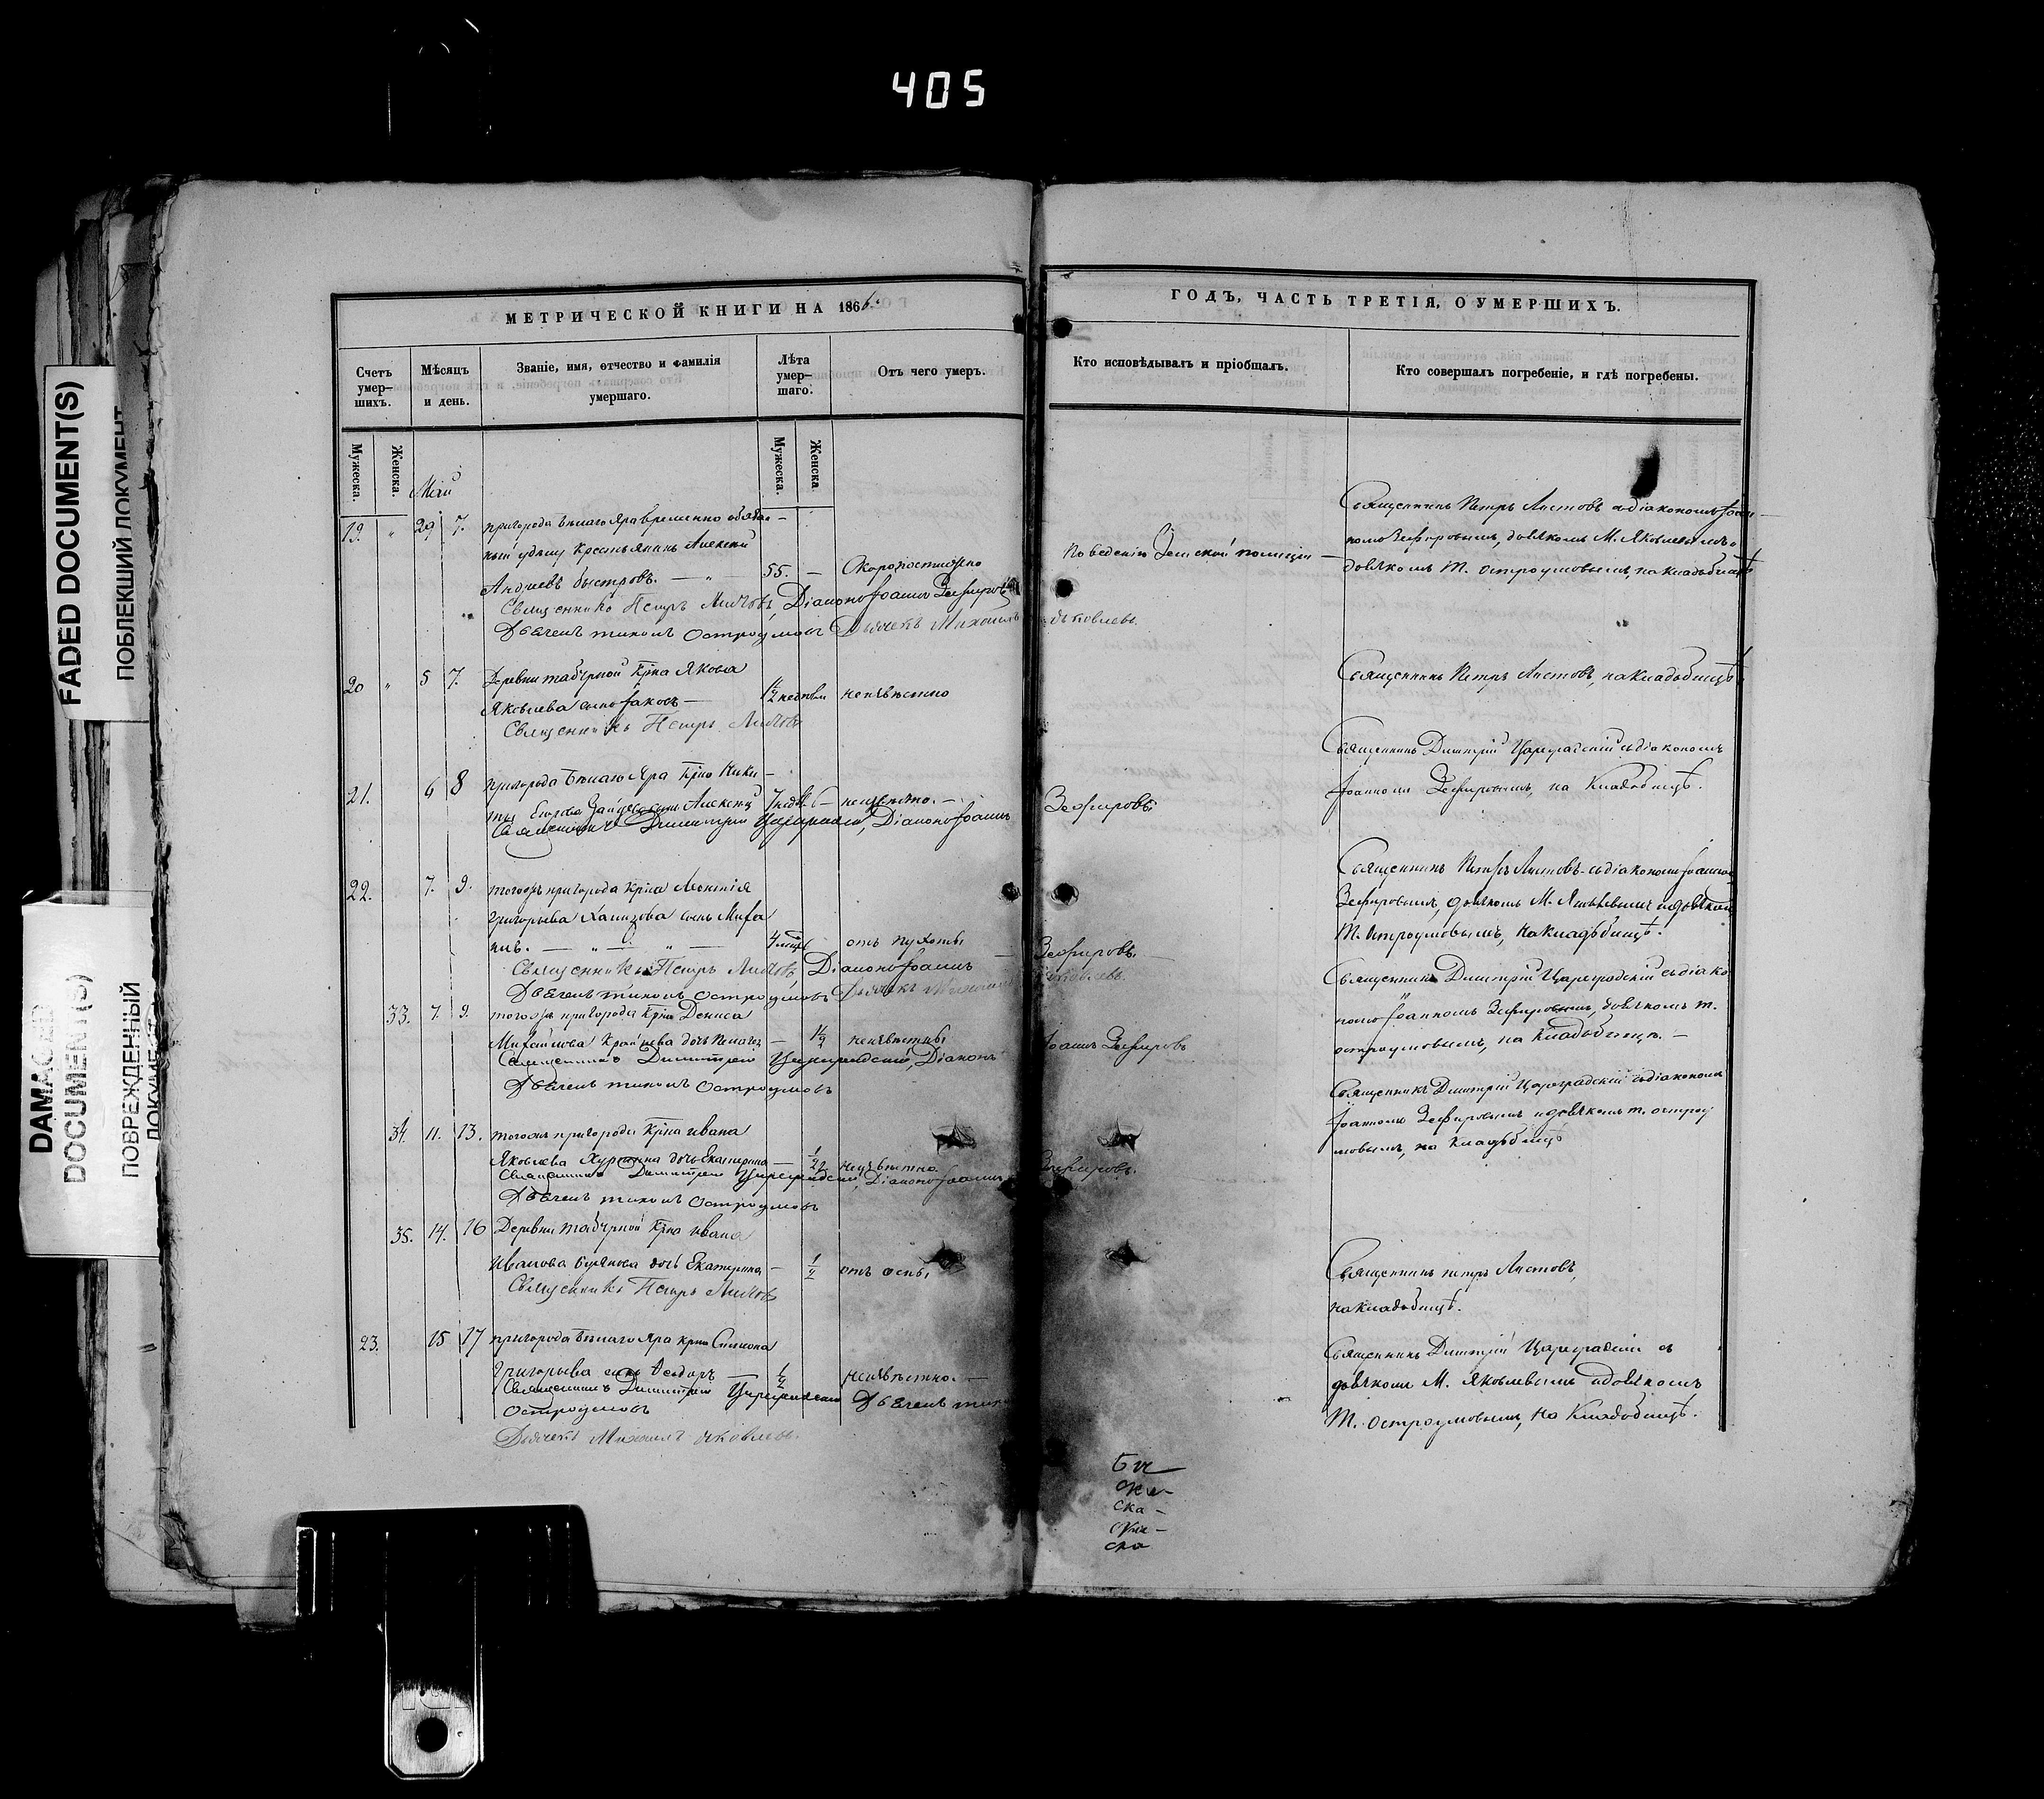 405
FADED DOCUMENT(S)
ПОБЛЕКШИЙ ДОКУМЕНТ
DAMAGED
DOCUMENT(S)
ПОВРЕЖДЕННЫЙ
ДОКУМЕНТ
МЕТРИЧЕСКОЙ КНИГИ НА 1866.
Счетъ умер-шихъ.
Мѣсяцъ и день.
Званіе, имя, отчество и фамилія умершаго.
Лѣта умер-шаго.
Отъ чего умеръ.
Мужеска.
Женска.
Мужеска.
Женска.
Май
19. " 29 7. пригорода Бѣлаго Яра временно обязан-
ный удѣлу крестьянинъ Алексѣй
Андреевъ Быстровъ. — " 55. — Скоропостижно
Священникъ Петръ Листовъ, Діаконъ Іоаннъ Зефировъ
Дьячекъ Тихонъ Остроумовъ Дьячекъ Михаилъ Яковлевъ.
20 " 5 7. Деревни Табурной крна Якова
Яковлева сынъ Іаковъ — 1½ недѣли неизвѣстно
Священникъ Петръ Листовъ
21. 6 8 пригорода Бѣлаго Яра крна Ники-
ты Егорова Зайцева сынъ Алексѣй 7 недѣль — неизвѣстно. —
Священникъ Димитрій Цареградскій, Діаконъ Іоаннъ Зефировъ
22. 7. 9. тогожъ пригорода крна Леонтія
Григорьева Хамизова сынъ Миха
илъ. — " — " — 4 мѣсяц отъ пухоты
Священникъ Петръ Листовъ Діаконъ Іоаннъ Зефировъ.
Дьячекъ Тихонъ Остроумовъ Дьячекъ Михаилъ Яковлевъ.
33. 7. 9. тогожъ пригорода крна Дениса
Михайлова дочь Пелагея — 1½ неизвѣстны
Священникъ Димитрій Цареградскій, Діаконъ Іоаннъ Зефировъ
Дьячекъ Тихонъ Остроумовъ
34. 11. 13. тогожъ пригорода крна Ивана
Яковлева дочь Екатерина — ½ неизвѣстно
Священникъ Димитрій Цареградскій, Діаконъ Іоаннъ Зефировъ.
Дьячекъ Тихонъ Остроумовъ
35. 14. 16 Деревни Табурной крна Ивана
Иванова дочь Екатерина — ½ отъ оспы
Священникъ Петръ Листовъ
23. 15 17 пригорода Бѣлаго Яра крна Симиона
Григорьева сынъ Феодоръ — ½ неизвѣстно. —
Священникъ Димитрій Цареградскій Дьячекъ Тихонъ
Остроумовъ
Дьячекъ Михаилъ Яковлевъ.
ГОДЪ, ЧАСТЬ ТРЕТІЯ, О УМЕРШИХЪ.
Кто исповѣдывалъ и пріобщалъ.
Кто совершалъ погребеніе, и гдѣ погребены.
По веденію Земской полиціи —
Священникъ Петръ Листовъ с діакономъ Іоан-
номъ Зефировымъ, дьячкомъ М. Яковлевымъ и
дьячкомъ Т. Остроумовымъ, на кладбищѣ
Священникъ Петръ Листовъ, на Кладбищѣ
Священникъ Димитрій Цареградскій с діакономъ
Іоанномъ Зефировымъ, на Кладбищѣ.
Священникъ Петръ Листовъ с діакономъ Іоанномъ
Зефировымъ, дьячкомъ М. Яковлевымъ и дьячкомъ
Т. Остроумовымъ, на кладбищѣ.
Священникъ Димитрій Цареградскій с діако
номъ Іоанномъ Зефировымъ, дьячкомъ Т.
Остроумовымъ, на Кладбищѣ. —
Священникъ Димитрій Цареградскій с діакономъ
Іоанномъ Зефировымъ и дьячкомъ Т. Остроу
мовымъ, на Кладбищѣ
Священникъ Петръ Листовъ,
на Кладбищѣ.
Священникъ Димитрій Цареградскій с
дьячкомъ М. Яковлевымъ и дьячкомъ
Т. Остроумовымъ, на Кладбищѣ.
ска-
ска